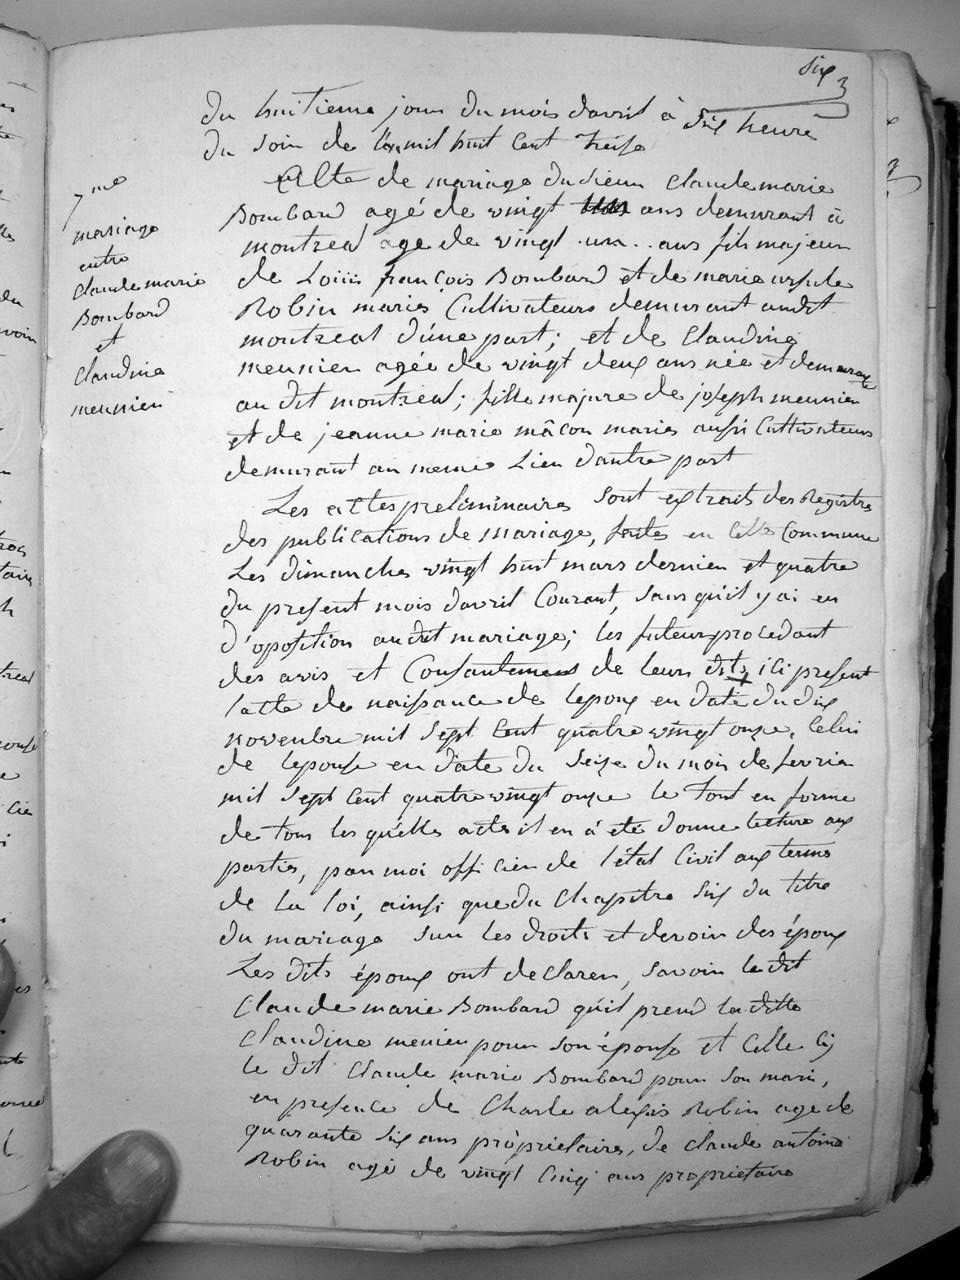 Six
3
du huitieme jour du mois davril à Six heure
du soir de l'an mil huit cent treise
7me
mariage
entre
Claude marie
Bombard
et
Claudine
meunier
Acte de mariage du sieur Claude marie
Bombard agé de vingt ans demurant à
montreal age de vingt un ans fils majeur
de Louis françois Bombard et de marie ursule
Robin mariés Cultivateurs demurant audit
montreal d'une part; et de Claudine
meunier agée de vingt deux ans née et demurante
au dit montreal; fille majure de joseph meunier
et de jeanne marie mâcon mariés aussi Cultivateurs
demurant au meme Lieu d'autre part
Les actes preliminaires sont extraits des Registre
des publications de mariage, faites en cette Commune
Les dimanches vingt huit mars dernier et quatre
du present mois davril Courant, sans qu'il y ai eu
d'oposition audit mariage; les futeurs procedant
des avis et Consantement de leurs dits ici present
l'acte de naissance de lepoux en date du dix
novenbre mil sept cent quatre vingt onze, Celui
de lepouse en date du seize du mois de fevrier
mil sept cent quatre vingt onze le tout en forme
de tous les quelles acte il en à eté donne lecture aux
parties, par moi officier de l'état Civil aux terme
de la loi, ainsi que du Chapitre Six du titre
du mariage sur les droits et devoir des époux
Les dits époux ont declarer, savoir le dit
Claude marie Bombard quil prend la ditte
Claudine menier pour son épouse et Celle Cy
le dit Claude marie Bombard pour son mari,
en presence de Charle alexis Robin age de
quarante six ans propriétaire, de claude antoine
Robin agé de vingt Cinq ans propriétaire